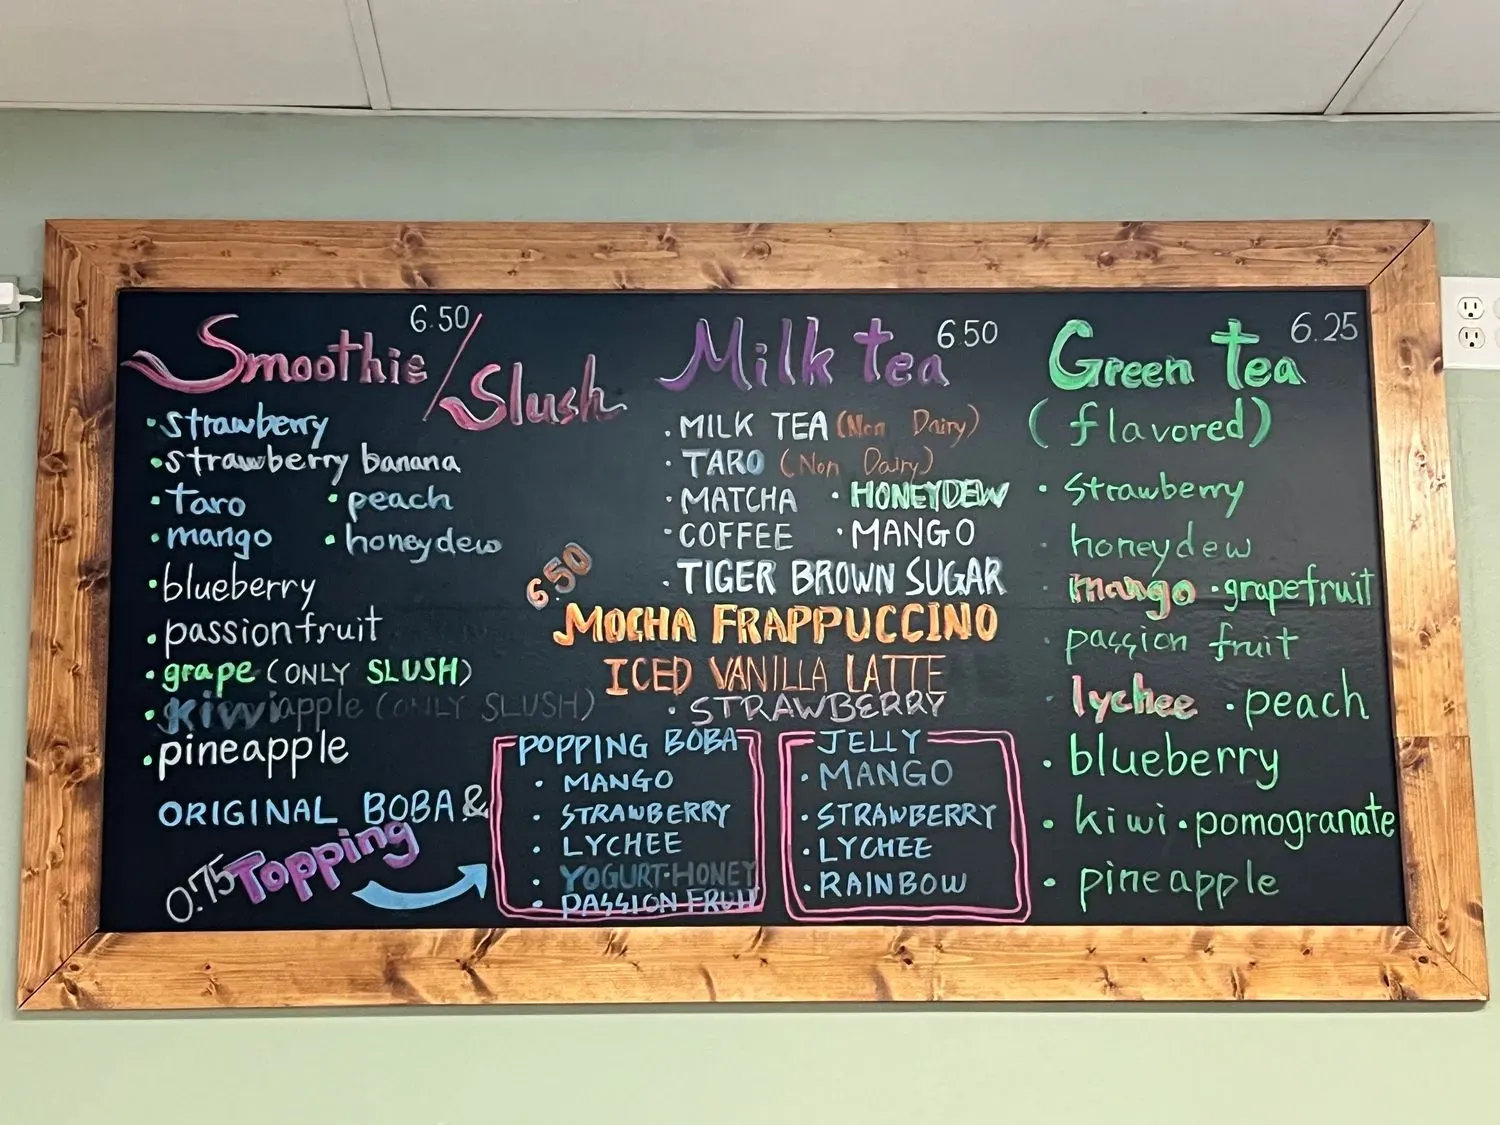 Smoothie/Slush 6.50
• strawberry
• strawberry banana
• Taro • peach
• mango • honeydew
• blueberry
• passionfruit
• grape (ONLY SLUSH)
• kiwi apple (ONLY SLUSH)
• pineapple
ORIGINAL BOBA &
0.75 Topping
Milk tea 6.50
• MILK TEA (Non Dairy)
• TARO (Non Dairy)
• MATCHA • HONEYDEW
• COFFEE • MANGO
• TIGER BROWN SUGAR
6.50
MOCHA FRAPPUCCINO
ICED VANILLA LATTE
• STRAWBERRY
POPPING BOBA
• MANGO
• STRAWBERRY
• LYCHEE
• YOGURT•HONEY
• PASSION FRUIT
JELLY
• MANGO
• STRAWBERRY
• LYCHEE
• RAINBOW
Green tea 6.25
(flavored)
• strawberry
• honeydew
• mango • grapefruit
• passion fruit
• lychee • peach
• blueberry
• kiwi • pomogranate
• pineapple